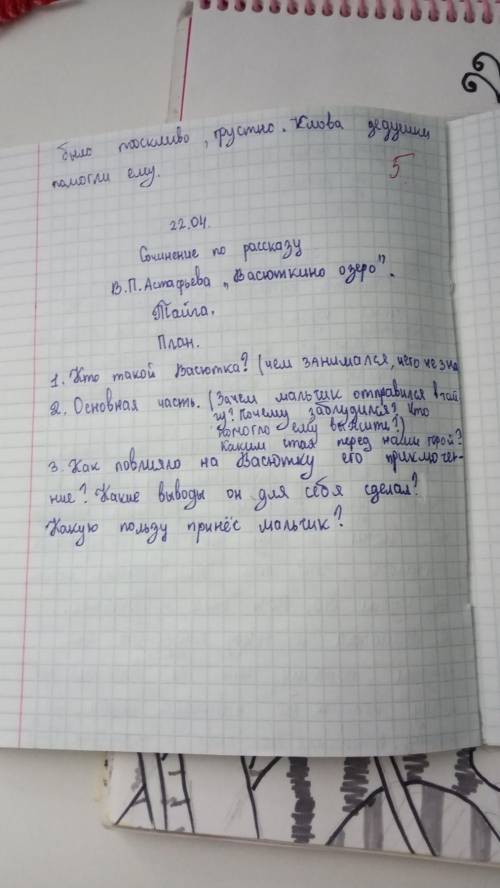 было тоскливо, грустно. Слова дедушки
помогли ему.
5
22.04.
Сочинение по рассказу
В.П.Астафьева „Васюткино озеро".
Тайга.
План.
1. Кто такой Васютка? (чем занимался, чего не зна
2. Основная часть. (Зачем мальчик отправился в тай
гу? Почему заблудился? Что
помогло ему выжить?)
Каким стал перед нами герой?
3. Как повлияло на Васютку его приключе-
ние? Какие выводы он для себя сделал?
Какую пользу принёс мальчик?